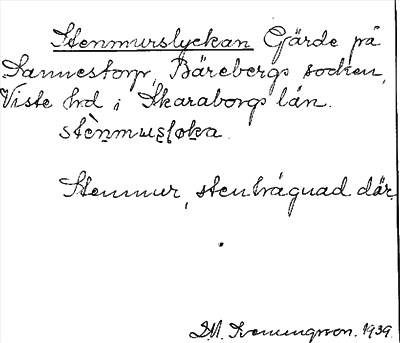 Stenmurslyckan Gärde på
Sannestorp, Bärebergs socken,
Viste hd i Skaraborgs län.
stènmuʂl̥øka
Stenmur, sten därav
D.M. 1939.